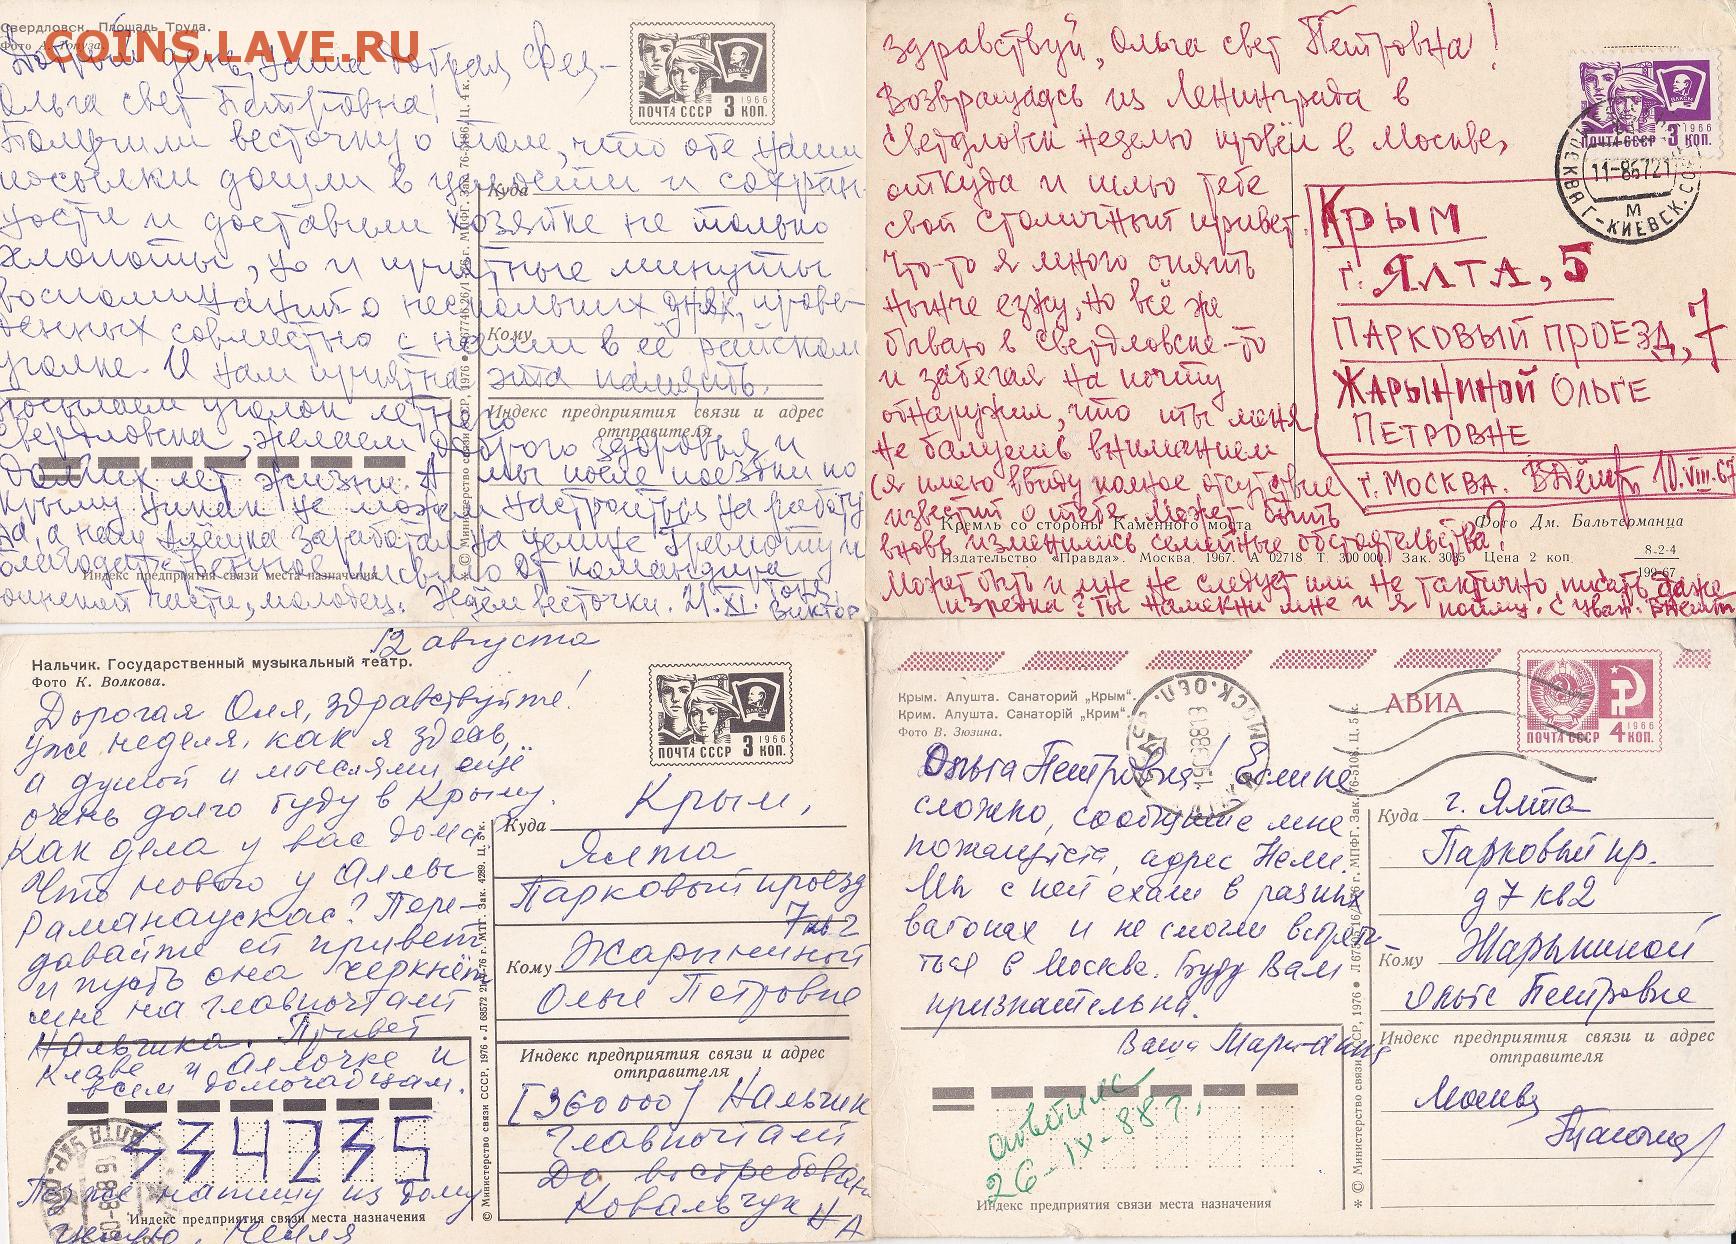 COINS.LAVE.RU
Свердловск. Площадь Труда.
Добрый день, наша добрая фея –
Ольга свет Петровна!
Получили весточку о том, что обе наши
посылки дошли в ценности и сохран-
ности и доставили хозяйке не только
хлопоты, но и приятные минуты
воспоминаний о нескольких днях, прове-
денных совместно с нами в её райском
уголке. И нам приятна эта память.
Посылаем уголок летнего
Свердловска, желаем доброго здоровья и
долгих лет жизни. А мы после поездки по
Крыму никак не можем настроиться на работу
да, а наш Алёшка заработал на
благодарственное письмо от командира
воинской части, молодец. Ждём весточки. 21.XI. Тоня,
Виктор
ПОЧТА СССР 3 КОП.
1966
ВЛКСМ
Куда
Кому
Индекс предприятия связи и адрес
отправителя
Индекс предприятия связи места назначения
Здравствуй, Ольга свет Петровна!
Возвращаясь из Ленинграда в
Свердловск неделю провёл в Москве,
откуда и шлю тебе
свой столичный привет.
Что-то я много опять
нынче езжу, но всё же
бываю в Свердловске-то
и забегая на почту
обнаружил, что ты меня
не балуешь вниманием
(я имею ввиду полное отсутствие
известий о тебе. Может быть
вновь изменились семейные обстоятельства?
Может быть и мне не следует или не тактично писать даже
изредка? Ты намекни мне и я пойму. С уваж.
ПОЧТА СССР 3 КОП.
1966
МОСКВА Г-КИЕВСК.
11-8672
М
Крым
г. ЯЛТА, 5
ПАРКОВЫЙ ПРОЕЗД, 7
ЖАРЫНИНОЙ ОЛЬГЕ
ПЕТРОВНЕ
г. МОСКВА. 10.VIII.67
Кремль со стороны Каменного моста
Фото Дм. Бальтерманца
Издательство «Правда». Москва. 1967. А 02718 Т. 300 000. Зак. 3085 Цена 2 коп
8-2-4
199-67
12 августа
Нальчик. Государственный музыкальный театр.
Фото К. Волкова.
Дорогая Оля, здравствуйте!
Уже неделя, как я здесь,
а душой и мыслями ещё
очень долго буду в Крыму.
Как дела у вас дома,
Что нового у Аллы
Раманаускас? Пере-
давайте ей привет
и пусть она черкнёт
мне на Главпочтамт
Нальчика. Привет
Клаве и Аллочке и
всем домочадцам.
334235
Позже напишу из дому
Целую, Нелля
Индекс предприятия связи места назначения
ПОЧТА СССР 3 КОП.
1966
ВЛКСМ
Куда Крым,
Ялта
Парковый проезд
7 кв 2
Кому Жарыниной
Ольге Петровне
Индекс предприятия связи и адрес
отправителя
[360000] Нальчик
Главпочтамт
До востребован
Ковальчук НА
© Министерство связи СССР, 1976
Крым. Алушта. Санаторий „Крым“.
Крим. Алушта. Санаторій „Крим“.
Фото В. Зюзина.
АВИА
ПОЧТА СССР 4 КОП.
1966
Ольга Петровна! Если не
сложно, сообщите мне
пожалуйста, адрес Нели.
Мы с ней ехали в разных
вагонах и не смогли встрет-
ться в Москве. Буду Вам
признательна.
Ваша
ответила
26-IX-88 г.
Куда г. Ялта
Парковый пр.
д 7 кв 2
Кому Жарыниной
Ольге Петровне
Индекс предприятия связи и адрес
отправителя
Москва
Индекс предприятия связи места назначения
© Министерство связи СССР, 1976